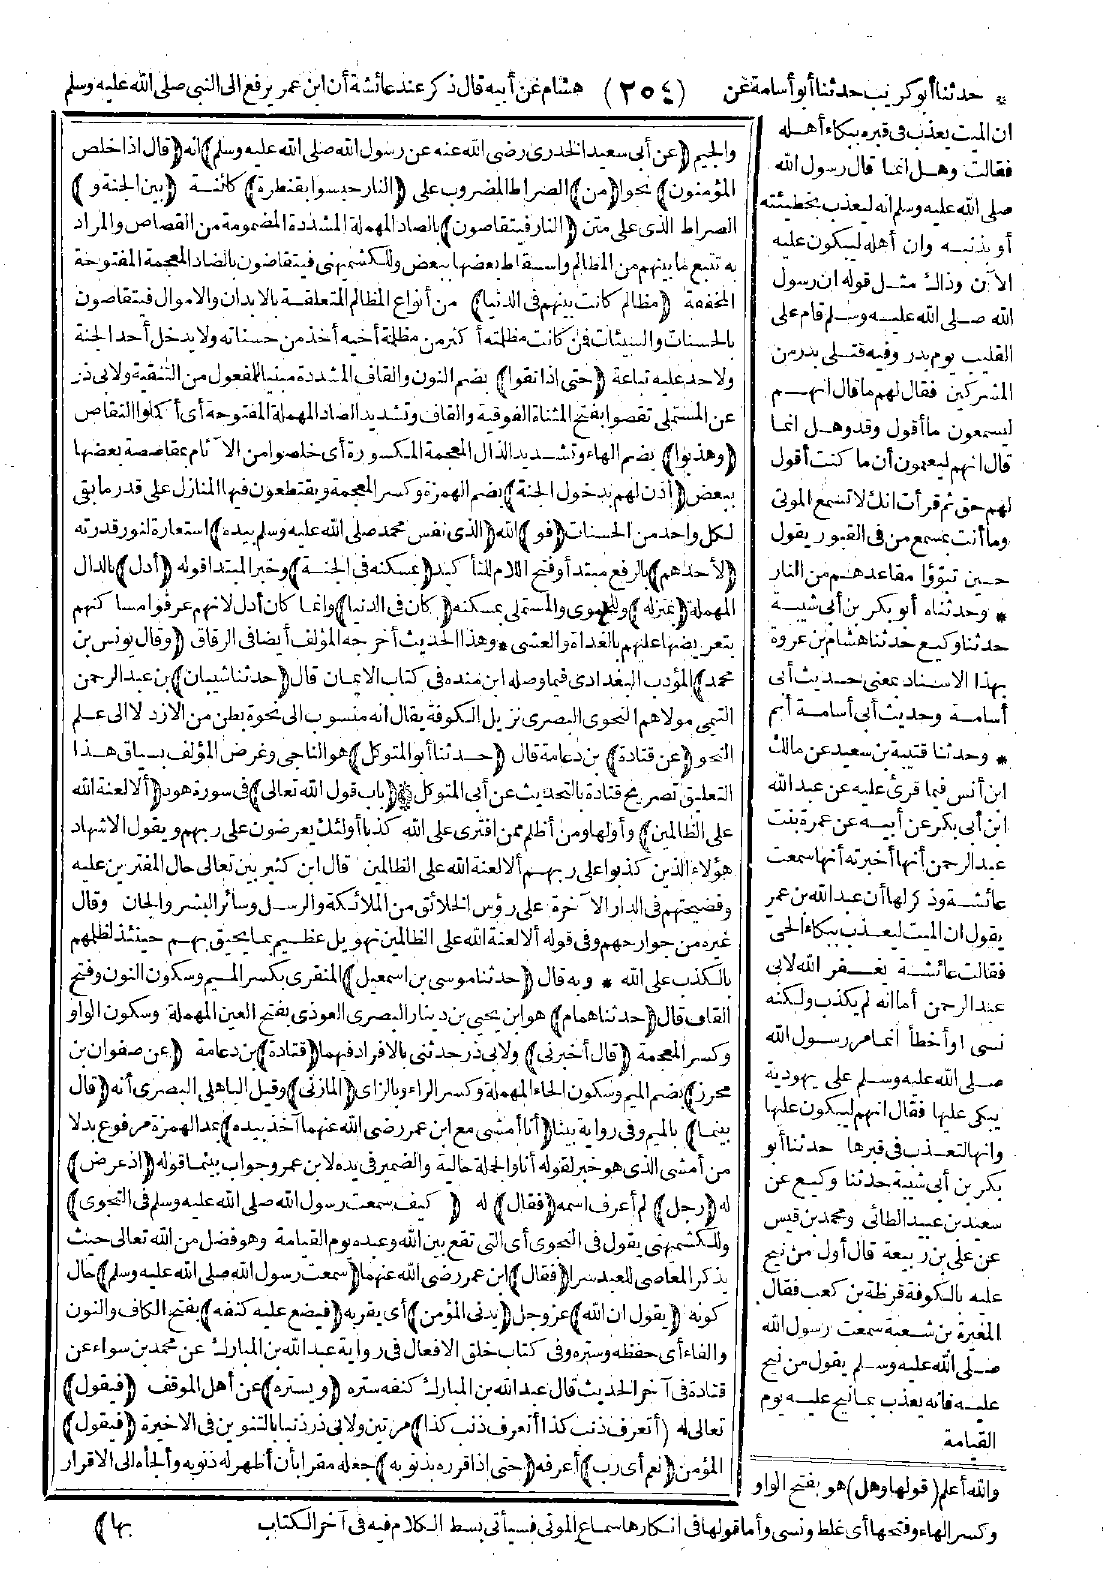 * حدثنا أبو كريب حدثنا أبو أسامة عن (٢٥٤) هشام عن أبيه قال ذكر عند عائشة أن ابن عمر يرفع الى النبي صلى الله عليه وسلم
ان الميت يعذب فى قبره ببكاء أهله
فقالت وهل انما قال رسول الله
صلى الله عليه وسلم انه ليعذب بخطيئته
أو بذنبه وان أهله ليبكون عليه
الآن وذاك مثل قوله ان رسول
الله صلى الله عليه وسلم قام على
القليب يوم بدر وفيه قتلى بدر من
المشركين فقال لهم ما قال انهم
ليسمعون ما أقول وقد وهل انما
قال انهم ليعلمون أن ما كنت أقول
لهم حق ثم قرأت انك لا تسمع الموتى
وما أنت بمسمع من فى القبور يقول
حين تبوّؤا مقاعدهم من النار
* وحدثناه أبو بكر بن أبى شيبة
حدثنا وكيع حدثنا هشام بن عروة
بهذا الاسناد بمعنى حديث أبى
أسامة وحديث أبى أسامة أتم
* وحدثنا قتيبة بن سعيد عن مالك
ابن أنس فيما قرئ عليه عن عبد الله
ابن أبى بكر عن أبيه عن عمرة بنت
عبد الرحمن أنها أخبرته أنها سمعت
عائشة وذكر لها أن عبد الله بن عمر
يقول ان الميت ليعذب ببكاء الحى
فقالت عائشة يغفر الله لابى
عبد الرحمن أما انه لم يكذب ولكنه
نسى أو أخطأ انما مر رسول الله
صلى الله عليه وسلم على يهودية
يبكى عليها فقال انهم ليبكون عليها
وانها لتعذب فى قبرها حدثنا أبو
بكر بن أبى شيبة حدثنا وكيع عن
سعيد بن عبيد الطائى ومحمد بن قيس
عن على بن ربيعة قال أول من نيح
عليه بالكوفة قرظة بن كعب فقال
المغيرة بن شعبة سمعت رسول الله
صلى الله عليه وسلم يقول من نيح
عليه فانه يعذب بما نيح عليه يوم
القيامة
والله أعلم (قولها وهل) هو بفتح الواو
وكسر الهاء وفتحها أى غلط ونسى وأما قولها فى انكارها سماع الموتى فسيأتى بسط الكلام فيه فى آخر الكتاب
والجيم (عن أبى سعيد الخدرى رضى الله عنه عن رسول الله صلى الله عليه وسلم) انه (قال اذا خلص
المؤمنون) نجوا (من) الصراط المضروب على (النار حبسوا بقنطرة) كائنة (بين الجنة و)
الصراط الذى على متن (النار فيتقاصون) بالصاد المهملة المشددة المضمومة من القصاص والمراد
به تتبع ما بينهم من المظالم واسقاط بعضها ببعض وللكشميهنى فيتقاضون بالضاد المعجمة المفتوحة
المخففة (مظالم كانت بينهم فى الدنيا) من أنواع المظالم المتعلقة بالابدان والاموال فيتقاصون
بالحسنات والسيئات فمن كانت مظلمته أكبر من مظلمة أخيه أخذ من حسناته ولا يدخل أحد الجنة
ولا حد عليه تباعة (حتى اذا نقوا) بضم النون والقاف المشددة مبنيا للمفعول من التنقية ولابى ذر
عن المستملى تقصوا بفتح المثناة الفوقية والقاف وتشديد الصاد المهملة المفتوحة أى أكملوا التقاص
(وهذبوا) بضم الهاء وتشديد الذال المعجمة المكسورة أى خلصوا من الآثام بمقاصصة بعضها
ببعض (أذن لهم بدخول الجنة) بضم الهمزة وكسر المعجمة ويقتطعون فيها المنازل على قدر ما بقى
لكل واحد من الحسنات (فو) الله (الذى نفس محمد صلى الله عليه وسلم بيده) استعارة لنور قدرته
(لأحدهم) بالرفع مبتدأ وفتح اللام للتأكيد (بمسكنه فى الجنة) وخبر المبتدا قوله (أدل) بالدال
المهملة (بمنزله) وللحموى والمستملى بمسكنه (كان فى الدنيا) وانما كان أدل لانهم عرفوا مساكنهم
بتعريضها عليهم بالغداة والعشى * وهذا الحديث أخرجه المؤلف أيضا فى الرقاق (وقال يونس بن
محمد) المؤدب البغدادى فيما وصله ابن منده فى كتاب الايمان قال (حدثنا شيبان) بن عبد الرحمن
التميمى مولاهم النحوى البصرى نزيل الكوفة يقال انه منسوب الى نحوة بطن من الازد لا الى علم
النحو (عن قتادة) بن دعامة قال (حدثنا أبو المتوكل) هو الناجى وغرض المؤلف بسياق هذا
التعليق تصريح قتادة بالتحديث عن أبى المتوكل * (باب قول الله تعالى) فى سورة هود (ألا لعنة الله
على الظالمين) وأولها ومن أظلم ممن افترى على الله كذبا أولئك يعرضون على ربهم ويقول الاشهاد
هؤلاء الذين كذبوا على ربهم ألا لعنة الله على الظالمين قال ابن كثير بين تعالى حال المفترين عليه
وفضيحتهم فى الدار الآخرة على رؤس الخلائق من الملائكة والرسل وسائر البشر والجان وقال
غيره من جوارحهم وفى قوله ألا لعنة الله على الظالمين تهويل عظيم بما يحيق بهم حينئذ لظلمهم
بالكذب على الله * وبه قال (حدثنا موسى بن اسمعيل) المنقرى بكسر الميم وسكون النون وفتح
القاف قال (حدثنا همام) هو ابن يحيى بن دينار البصرى العوذى بفتح العين المهملة وسكون الواو
وكسر المعجمة (قال أخبرنى) ولابى ذر حدثنى بالافراد فيهما (قتادة) بن دعامة (عن صفوان بن
محرز) بضم الميم وسكون الحاء المهملة وكسر الراء وبالزاى (المازنى) وقيل الباهلى البصرى أنه (قال
بينما) بالميم وفى رواية بينا (أنا أمشى مع ابن عمر رضى الله عنهما آخذ بيده) بمد الهمزة مرفوع بدلا
من أمشى الذى هو خبر لقوله أنا والجملة حالية والضمير فى يده لابن عمر وجواب بينما قوله (اذ عرض)
له (رجل) لم أعرف اسمه (فقال) له (كيف سمعت رسول الله صلى الله عليه وسلم فى النجوى)
وللكشميهنى يقول فى النجوى أى التى تقع بين الله وعبده يوم القيامة وهو فضل من الله تعالى حيث
يذكر المعاصى للعبد سرا (فقال) ابن عمر رضى الله عنهما (سمعت رسول الله صلى الله عليه وسلم) حال
كونه (يقول ان الله) عز وجل (يدنى المؤمن) أى يقربه (فيضع عليه كنفه) بفتح الكاف والنون
والفاء أى حفظه وستره وفى كتاب خلق الافعال فى رواية عبد الله بن المبارك عن محمد بن سواء عن
قتادة فى آخر الحديث قال عبد الله بن المبارك كنفه ستره (ويستره) عن أهل الموقف (فيقول)
تعالى له (أتعرف ذنب كذا أتعرف ذنب كذا) مرتين ولابى ذر ذنبا بالتنوين فى الاخيرة (فيقول)
المؤمن (نعم أى رب) أعرفه (حتى اذا قرره بذنوبه) جعله مقرا بأن أظهر له ذنوبه وألجأه الى الاقرار
بها)